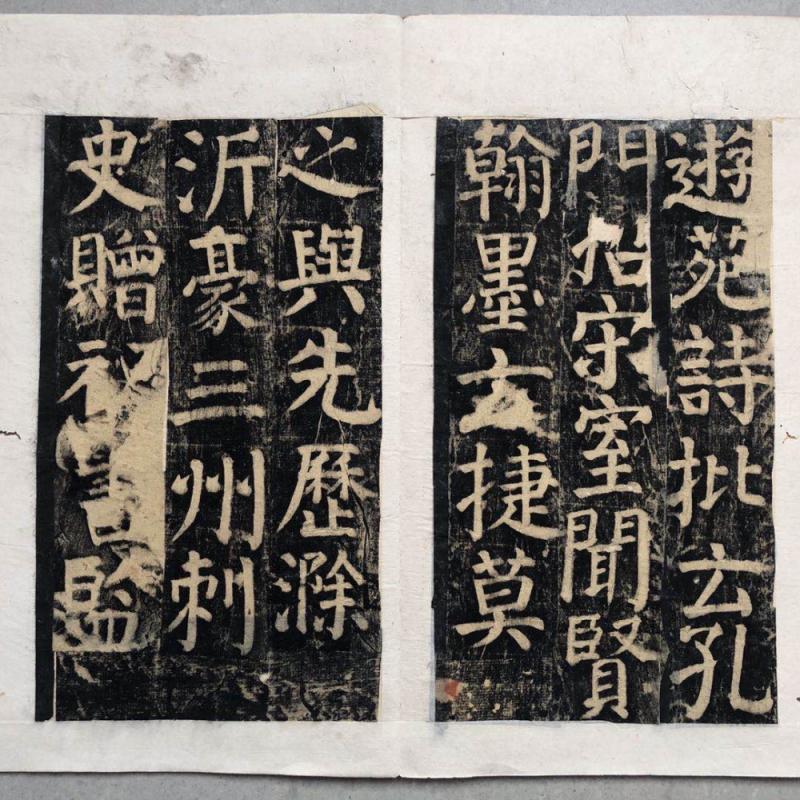 遊苑詩批玄孔
門守室聞賢
翰墨玄捷莫
之與先歷滁
沂豪三州刺
史贈秘書監